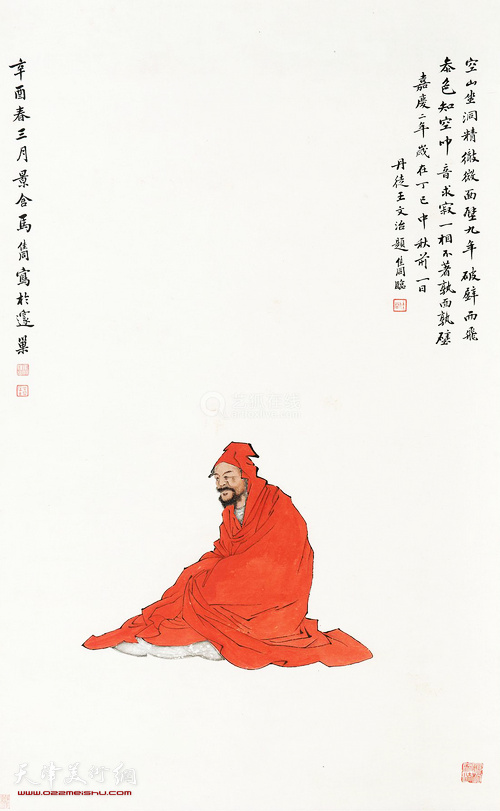 空山坐洞精徹微面壁九年破壁而飛
泰色知空叩音求寂一相不著孰而孰壁
嘉慶二年歲在丁巳中秋前一日
丹徒王文治題 雋臨
辛酉春三月景含馬雋寫於邃巢
天津美术网
www.022meishu.com